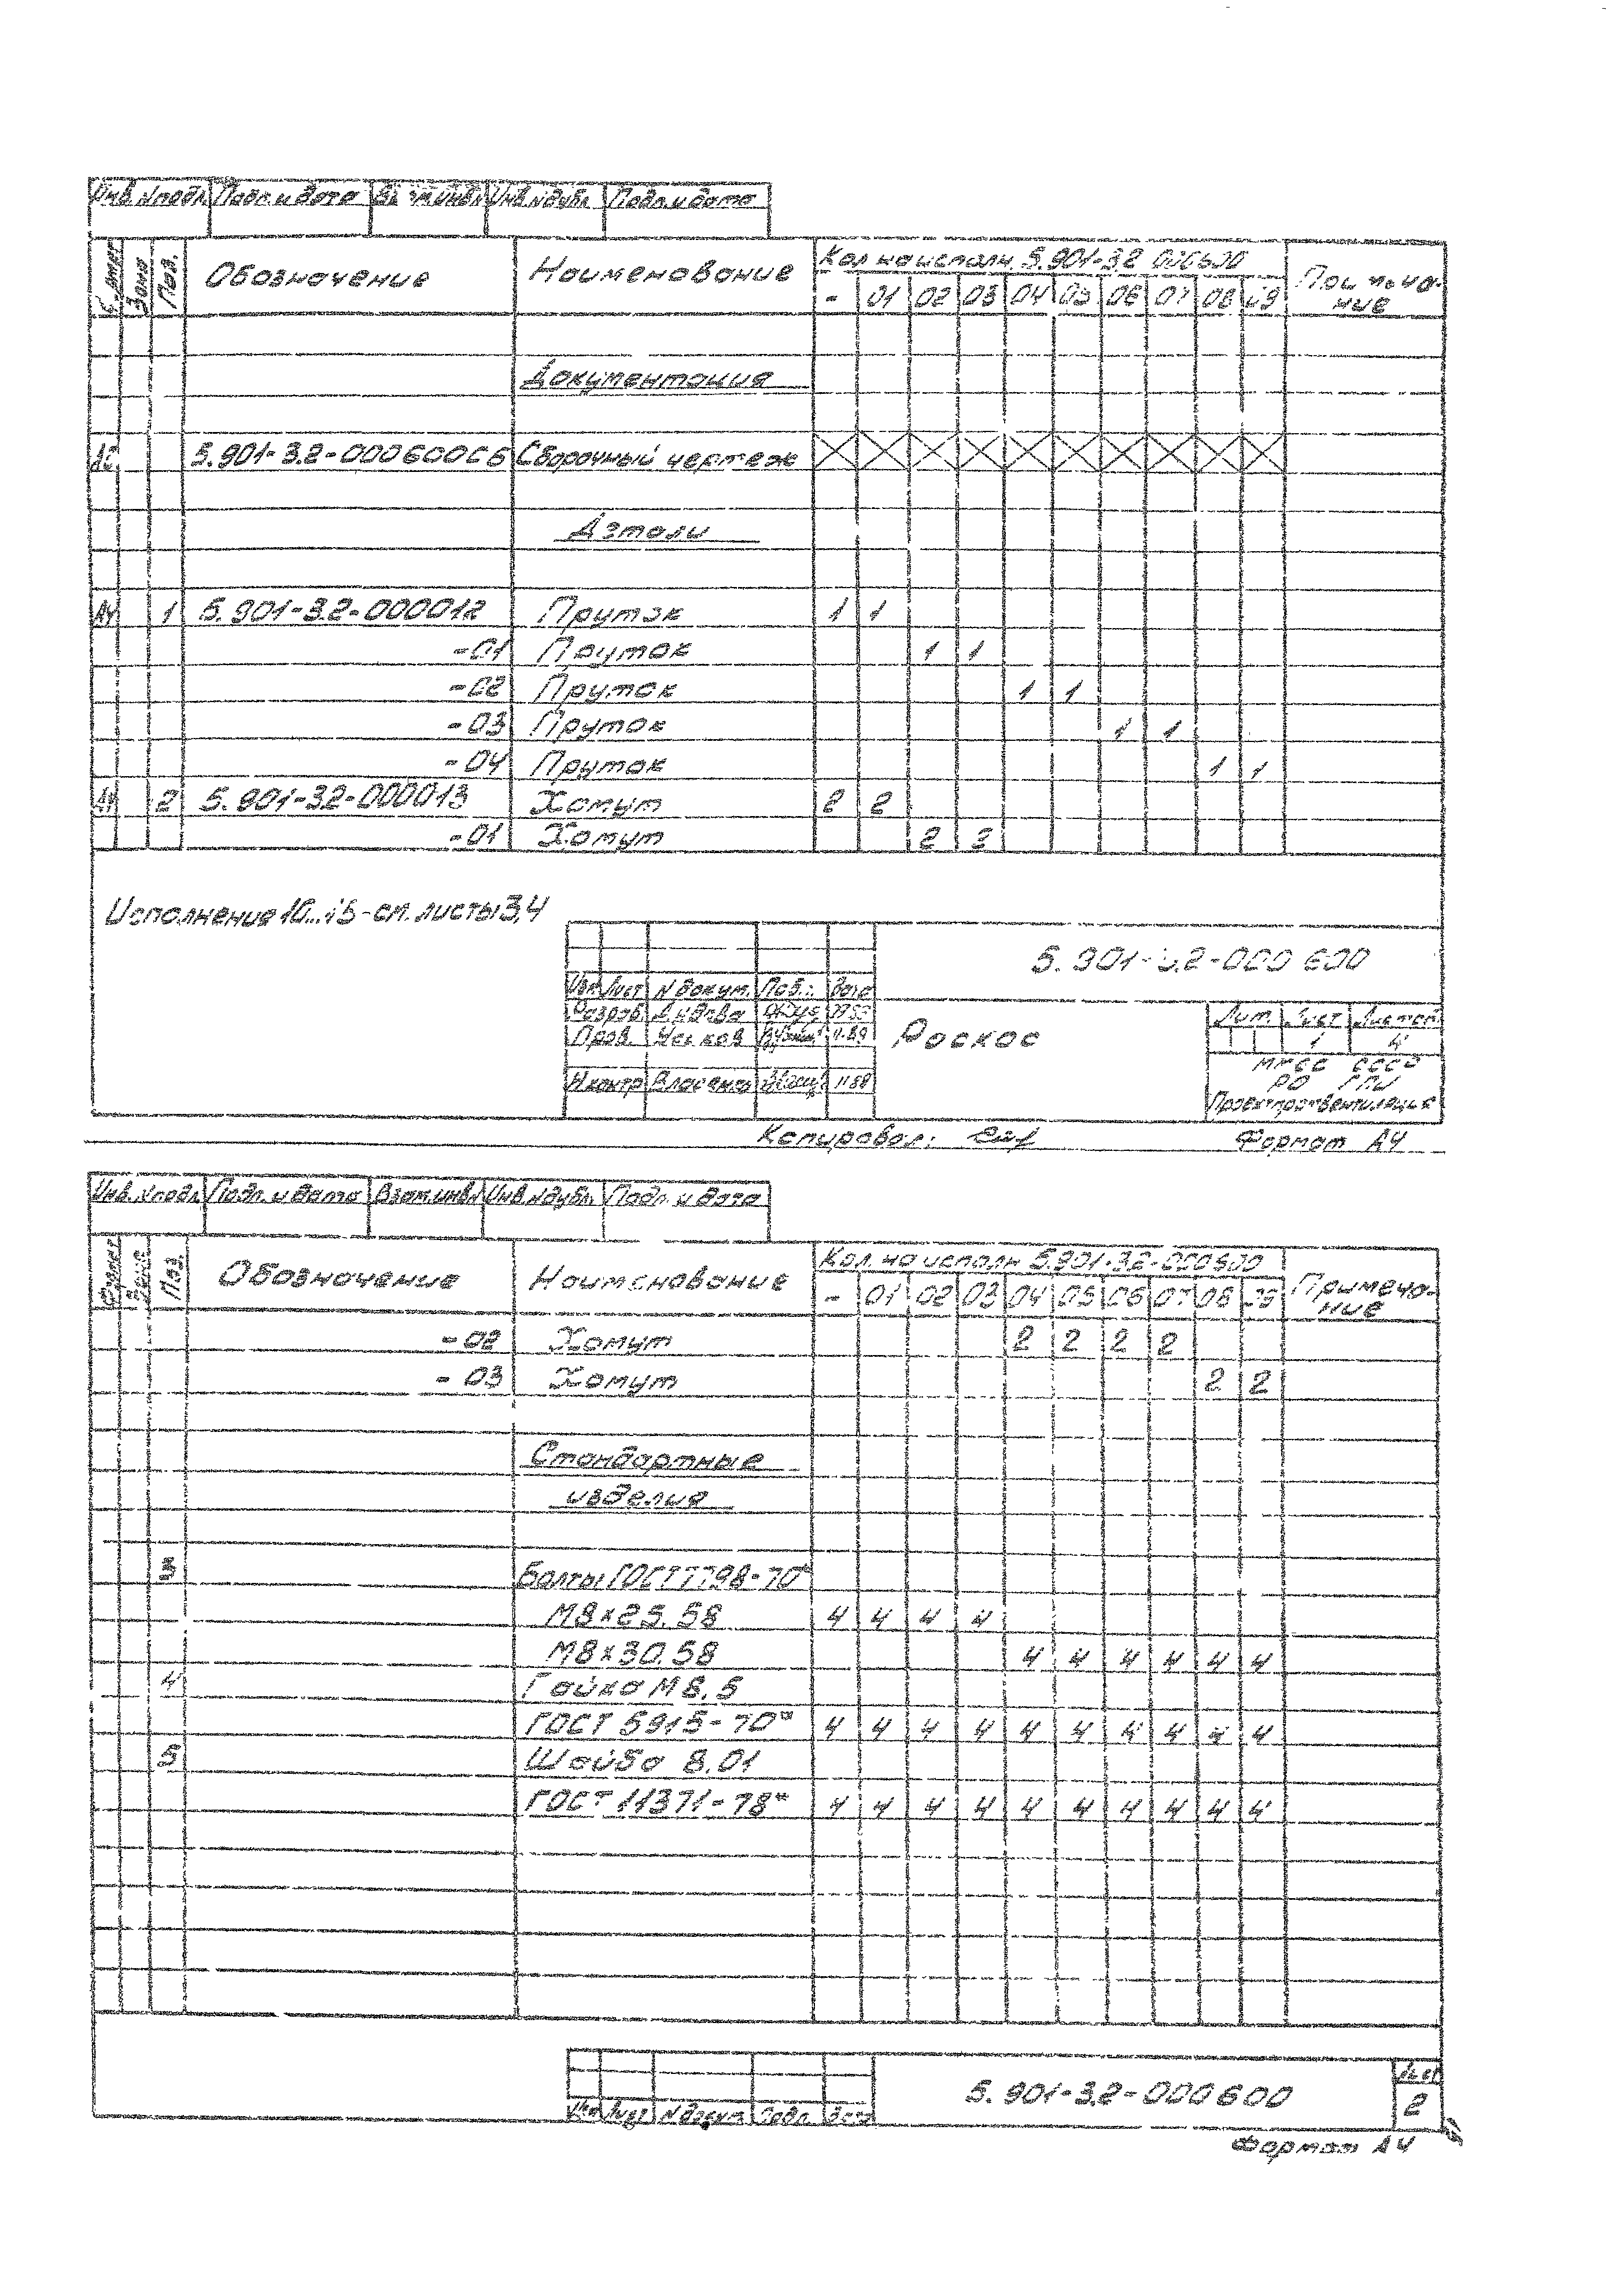 Инв.Nподл. Подп. и дата Взам.инв.N Инв.Nдубл. Подп. и дата
Формат Зона Поз. Обозначение Наименование Кол. на исполн. 5.901-3.2-000600 Примеча-
ние
- 01 02 03 04 05 06 07 08 09
Документация
5.901-3.2-000600СБ Сборочный чертеж
Детали
А4 1 5.901-3.2-000012 Пруток 1 1
-01 Пруток 1 1
-02 Пруток 1 1
-03 Пруток 1 1
-04 Пруток 1 1
А4 2 5.901-3.2-000013 Хомут 2 2
-01 Хомут 2 2
Исполнение 10...15-см. листы 3,4
5.901-3.2-000600
Изм. Лист N докум. Подп. Дата
Разраб.
Пров. Уськов 11.89
Н.контр. Власенко 11.89
Роскос
Лит. Лист Листов
1 4
СССР
РО ГПИ
Проектпромвентиляция
Копировал: Формат А4
Инв.Nподл. Подп. и дата Взам.инв.N Инв.Nдубл. Подп. и дата
Формат Зона Поз. Обозначение Наименование Кол. на исполн. 5.901-3.2-000600 Примеча-
ние
- 01 02 03 04 05 06 07 08 09
-02 Хомут 2 2 2 2
-03 Хомут 2 2
Стандартные
изделия
3 Болты ГОСТ 7798-70*
М8×25.58 4 4 4 4
М8×30.58 4 4 4 4 4 4
4 Гайка М8.5
ГОСТ 5915-70* 4 4 4 4 4 4 4 4 4 4
5 Шайба 8.01
ГОСТ 11371-78* 4 4 4 4 4 4 4 4 4 4
Изм. Лист N докум. Подп. Дата
5.901-3.2-000600
Лист
2
Формат А4